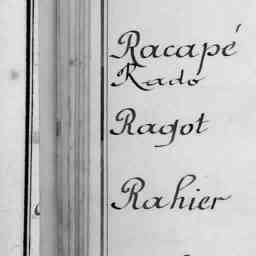 Racapé
Rado
Ragot
Rahier